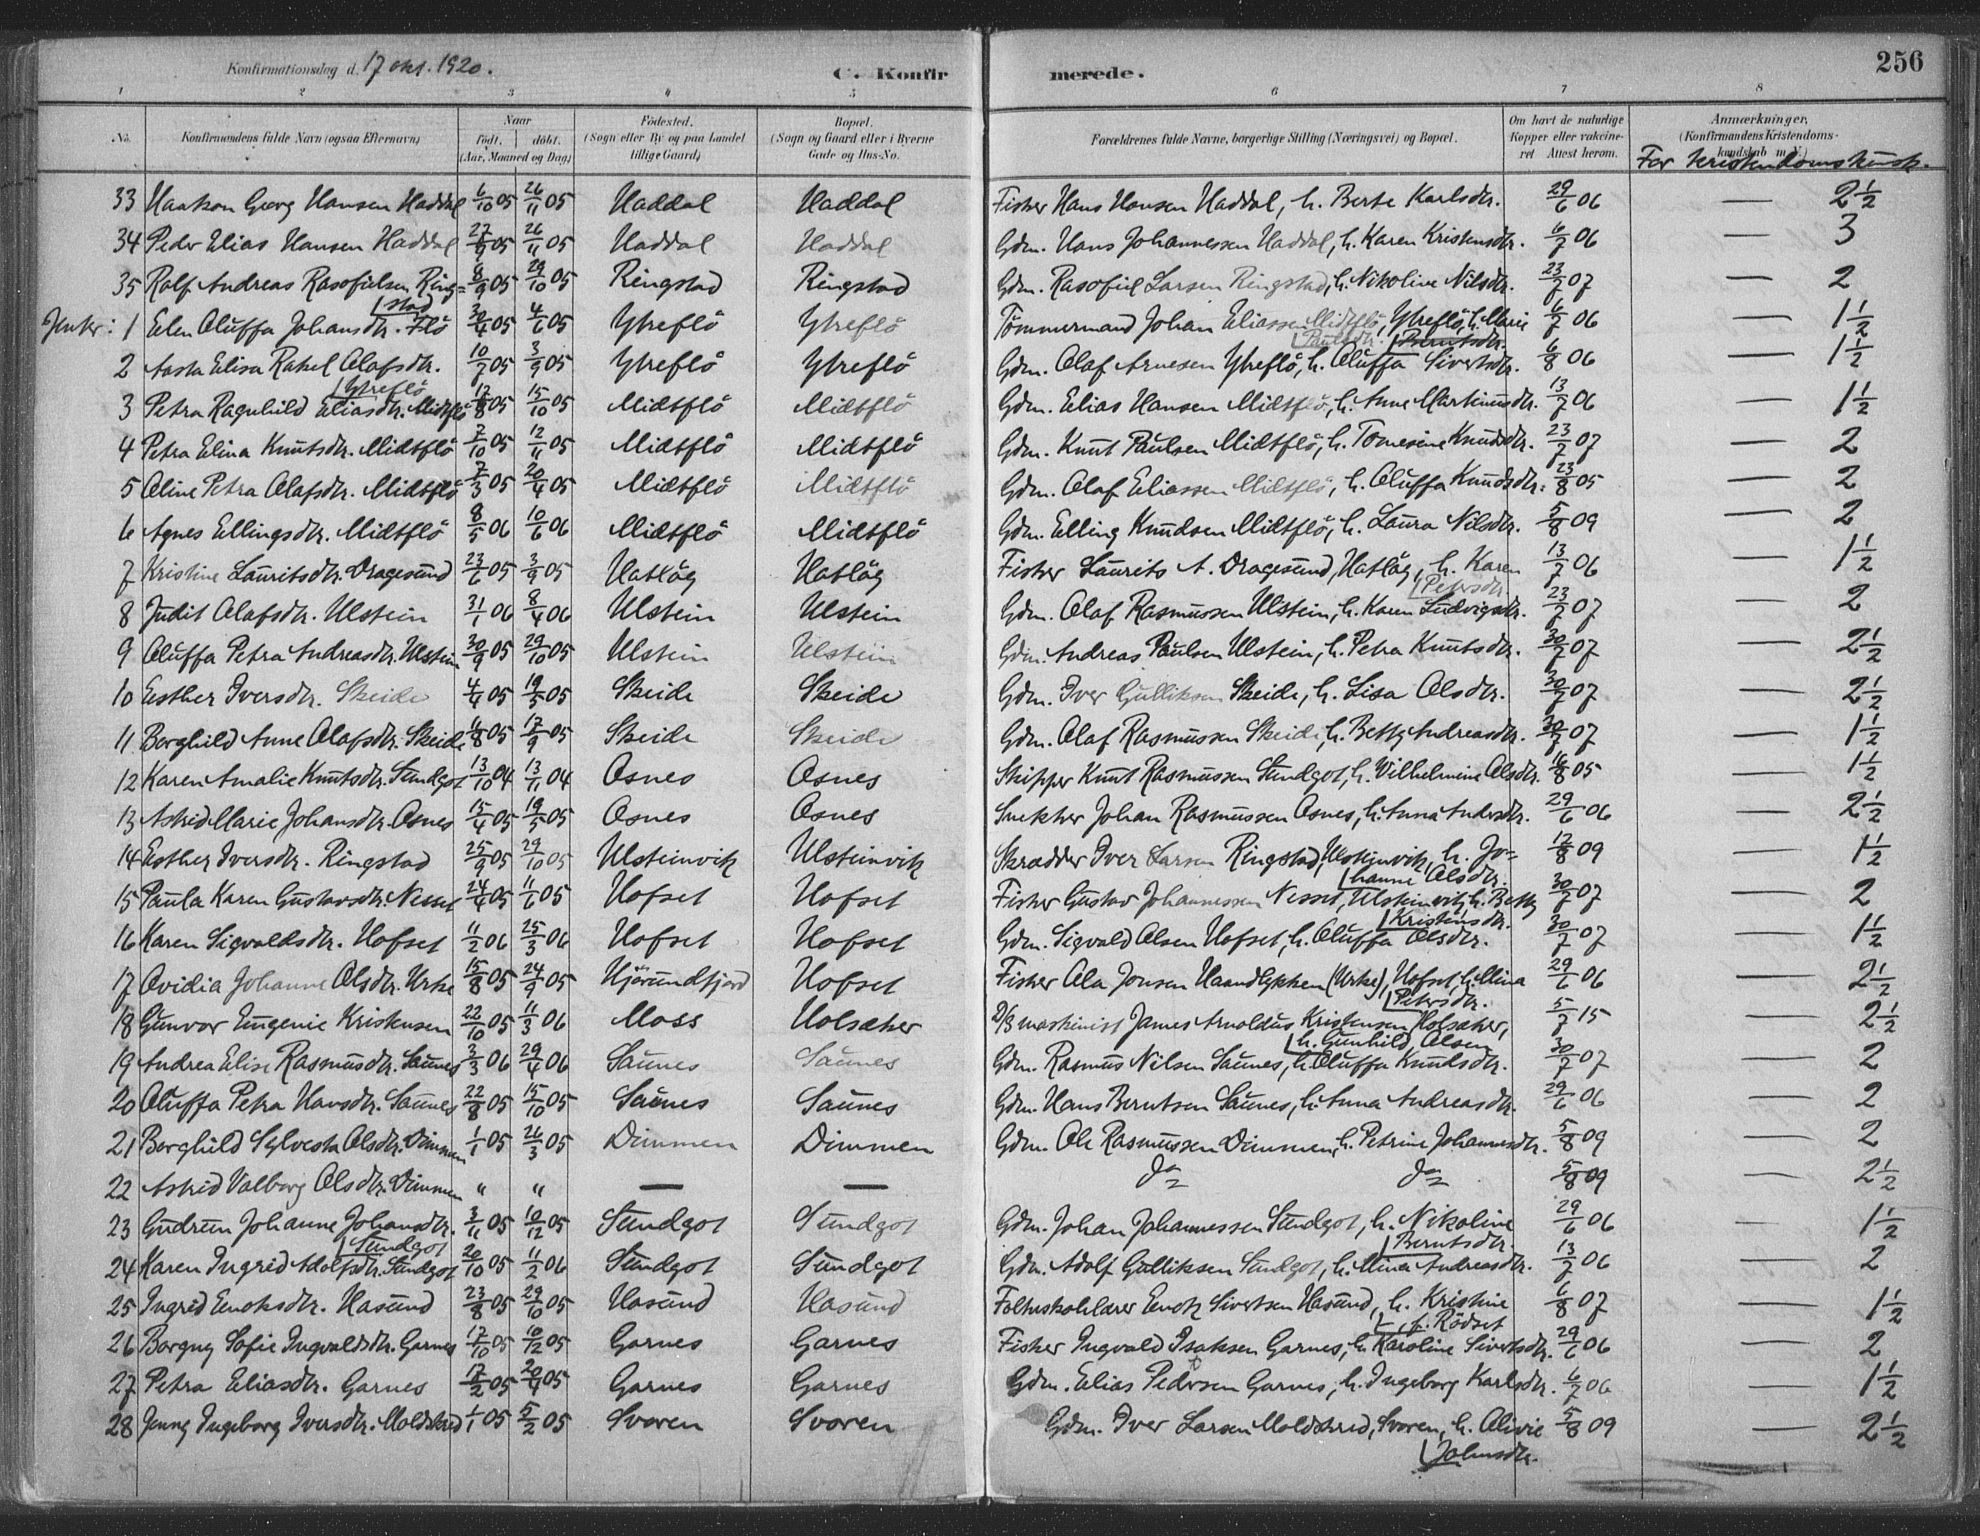 Konfirmationsdag d. 17 okt. 1920.
C. Konfirmerede.
256
1 2 3 4 5 6 7 8
No.
Konfirmandens fulde Navn (ogsaa Efternavn)
Naar
født. døbt.
(Aar, Maaned og Dag)
Fødested.
(Sogn eller By og paa Landet tillige Gaard)
Bopæl.
(Sogn og Gaard eller i Byerne Gade og Hus-No.
Forældrenes fulde Navne, borgerlige Stilling (Næringsvei) og Bopæl.
Om havt de naturlige Kopper eller vaccineret Attest herom.
Anmærkninger,
(Konfirmandens Kristendomskundskab m. V.)
For kristendomskundsk.
33 Haakon Georg Hansen Haddal 6/10 05 26/11 05 Haddal Haddal Fisker Hans Hansen Haddal, h. Berte Karlsdtr. 29/6 06 — 2 1/2
34 Peder Elias Hansen Haddal 27/9 05 26/11 05 Haddal Haddal Gdm. Hans Johannessen Haddal, h. Karen Kristensdtr. 6/7 06 — 3
35 Rolf Andreas Rasofielsen Ring=stad 8/9 05 29/10 05 Ringstad Ringstad Gdm. Rasofiel Larsen Ringstad, h. Nikoline Nilsdtr. 23/7 07 — 2
Jenter:
1 Elen Oluffa Johansdtr. Flö 30/4 05 4/6 05 Ytreflö Ytreflö Tömmermand Johan Eliassen Midtflö, Ytreflö, h. Marie Berntsdtr. 6/7 06 — 1 1/2
2 Aasta Elisa Rakel Olafsdtr. Ytreflö 10/7 05 3/9 05 Ytreflö Ytreflö Gdm. Olaf Arnesen Ytreflö, h. Oluffa Sivertsdtr. 6/8 06 — 1 1/2
3 Petra Ragnhild Eliasdtr. Midtflö 12/8 05 15/10 05 Midtflö Midtflö Gdm. Elias Hansen Midtflö, h. Anne Martinusdtr. 13/7 06 — 1 1/2
4 Petra Elina Knutsdtr. Midtflö 7/10 05 12/11 05 Midtflö Midtflö Gdm. Knut Paulsen Midtflö, h. Tomesine Knudsdtr. 23/7 07 — 2
5 Oline Petra Olafsdtr. Midtflö 7/3 05 20/4 05 Midtflö Midtflö Gdm. Olaf Eliassen Midtflö, h. Oluffa Knudsdtr. 23/8 05 — 2
6 Agnes Ellingsdtr. Midtflö 8/5 06 10/6 06 Midtflö Midtflö Gdm. Elling Knudsen Midtflö, h. Laura Nilsdtr. 5/8 09 — 2
7 Kristine Lauritsdtr. Dragesund 23/6 05 3/9 05 Hatlåg Hatlåg Fisker Laurits A. Dragesund, Hatlåg, h. Karen Petersdtr. 13/7 06 — 1 1/2
8 Judit Olafsdtr. Ulstein 31/1 06 8/4 06 Ulstein Ulstein Gdm. Olaf Rasmussen Ulstein, h. Karen Ludvigsdtr. 23/7 07 — 2
9 Oluffa Petra Andreasdtr. Ulstein 30/9 05 29/10 05 Ulstein Ulstein Gdm. Andreas Paulsen Ulstein, h. Petra Knutsdtr. 30/7 07 — 2 1/2
10 Esther Iversdtr. Skeide 4/4 05 19/5 05 Skeide Skeide Gdm. Iver Gulliksen Skeide, h. Lisa Olsdtr. 30/7 07 — 2 1/2
11 Borghild Anne Olafsdtr. Skeide 11/8 05 17/9 05 Skeide Skeide Gdm. Olaf Rasmussen Skeide, h. Betty Andreasdtr. 30/7 07 — 1 1/2
12 Karen Amalie Knutsdtr. Sundgot 13/10 04 13/11 04 Osnes Osnes Skipper Knut Rasmussen Sundgot, h. Vilhelmine Olsdtr. 16/8 05 — 1 1/2
13 Astrid Marie Johansdtr. Osnes 15/4 05 19/5 05 Osnes Osnes Snekker Johan Rasmussen Osnes, h. Anna Andersdtr. 29/6 06 — 2 1/2
14 Esther Iversdtr. Ringstad 25/9 05 29/10 05 Ulsteinvik Ulsteinvik Skrædder Iver Larsen Ringstad, Ulsteinvik, h. Jo=hanne Olsdtr. 12/8 09 — 1 1/2
15 Paula Karen Gustavsdtr. Nesset 24/4 05 11/6 05 Hofset Hofset Fisker Gustav Johannessen Nesset, Ulsteinvik, h. Betty Kristensdtr. 30/7 07 — 2
16 Karen Sigvaldsdtr. Hofset 11/2 06 25/3 06 Hofset Hofset Gdm. Sigvald Olsen Hofset, h. Oluffa Olsdtr. 30/7 07 — 1 1/2
17 Ovidia Johanne Olsdtr. Urke 15/8 05 24/9 05 Hjörundfjord Hofset Fisker Ola Jonsen Haandlykken (Urke), Hofset, h. Mina Petersdtr. 29/6 06 — 2 1/2
18 Gunvor Eugenie Kristensen 22/10 05 11/3 06 Moss Holsæker D/S maskinist James Arnoldus Kristensen Holsæker, h. Gunhild Olsen 5/7 15 — 2 1/2
19 Andrea Elise Rasmusdtr. Saunes 2/3 06 29/4 06 Saunes Saunes Gdm. Rasmus Nilsen Saunes, h. Oluffa Knudsdtr. 30/7 07 — 2
20 Oluffa Petra Hansdtr. Saunes 22/8 05 15/10 05 Saunes Saunes Gdm. Hans Berntsen Saunes, h. Anna Andreasdtr. 29/6 06 — 2
21 Borghild Sylvesta Olsdtr. Dimmen 1/1 05 26/3 05 Dimmen Dimmen Gdm. Ole Rasmussen Dimmen, h. Petrine Johannesdtr. 5/8 09 — 2
22 Astrid Valborg Olsdtr. Dimmen " " — — Do Do 5/8 09 — 2 1/2
23 Gudrun Johanne Johansdtr. Sundgot 3/11 05 10/12 05 Sundgot Sundgot Gdm. Johan Johannessen Sundgot, h. Nikoline Berntsdtr. 29/6 06 — 1 1/2
24 Karen Ingrid Adolfsdtr. Sundgot 20/10 05 11/2 06 Sundgot Sundgot Gdm. Adolf Gulliksen Sundgot, h. Mina Andreasdtr. 13/7 06 — 2
25 Ingrid Enoksdtr. Hasund 23/8 05 29/10 05 Hasund Hasund Folkeskolelærer Enok Sivertsen Hasund, h. Kristine f. Rödset 6/8 07 — 1 1/2
26 Borgny Sofie Ingvaldsdtr. Garnes 17/10 05 10/12 05 Garnes Garnes Fisker Ingvald Isaksen Garnes, h. Karoline Sivertsdtr. 29/6 06 — 2
27 Petra Eliasdtr. Garnes 17/2 05 20/4 05 Garnes Garnes Gdm. Elias Pedersen Garnes, h. Ingeborg Karlsdtr. 6/7 06 — 1 1/2
28 Jenny Ingeborg Iversdtr. Moldskred 1/1 05 5/2 05 Svoren Svoren Gdm. Iver Larsen Moldskred, Svoren, h. Olivie Johnsdtr. 5/8 09 — 2 1/2